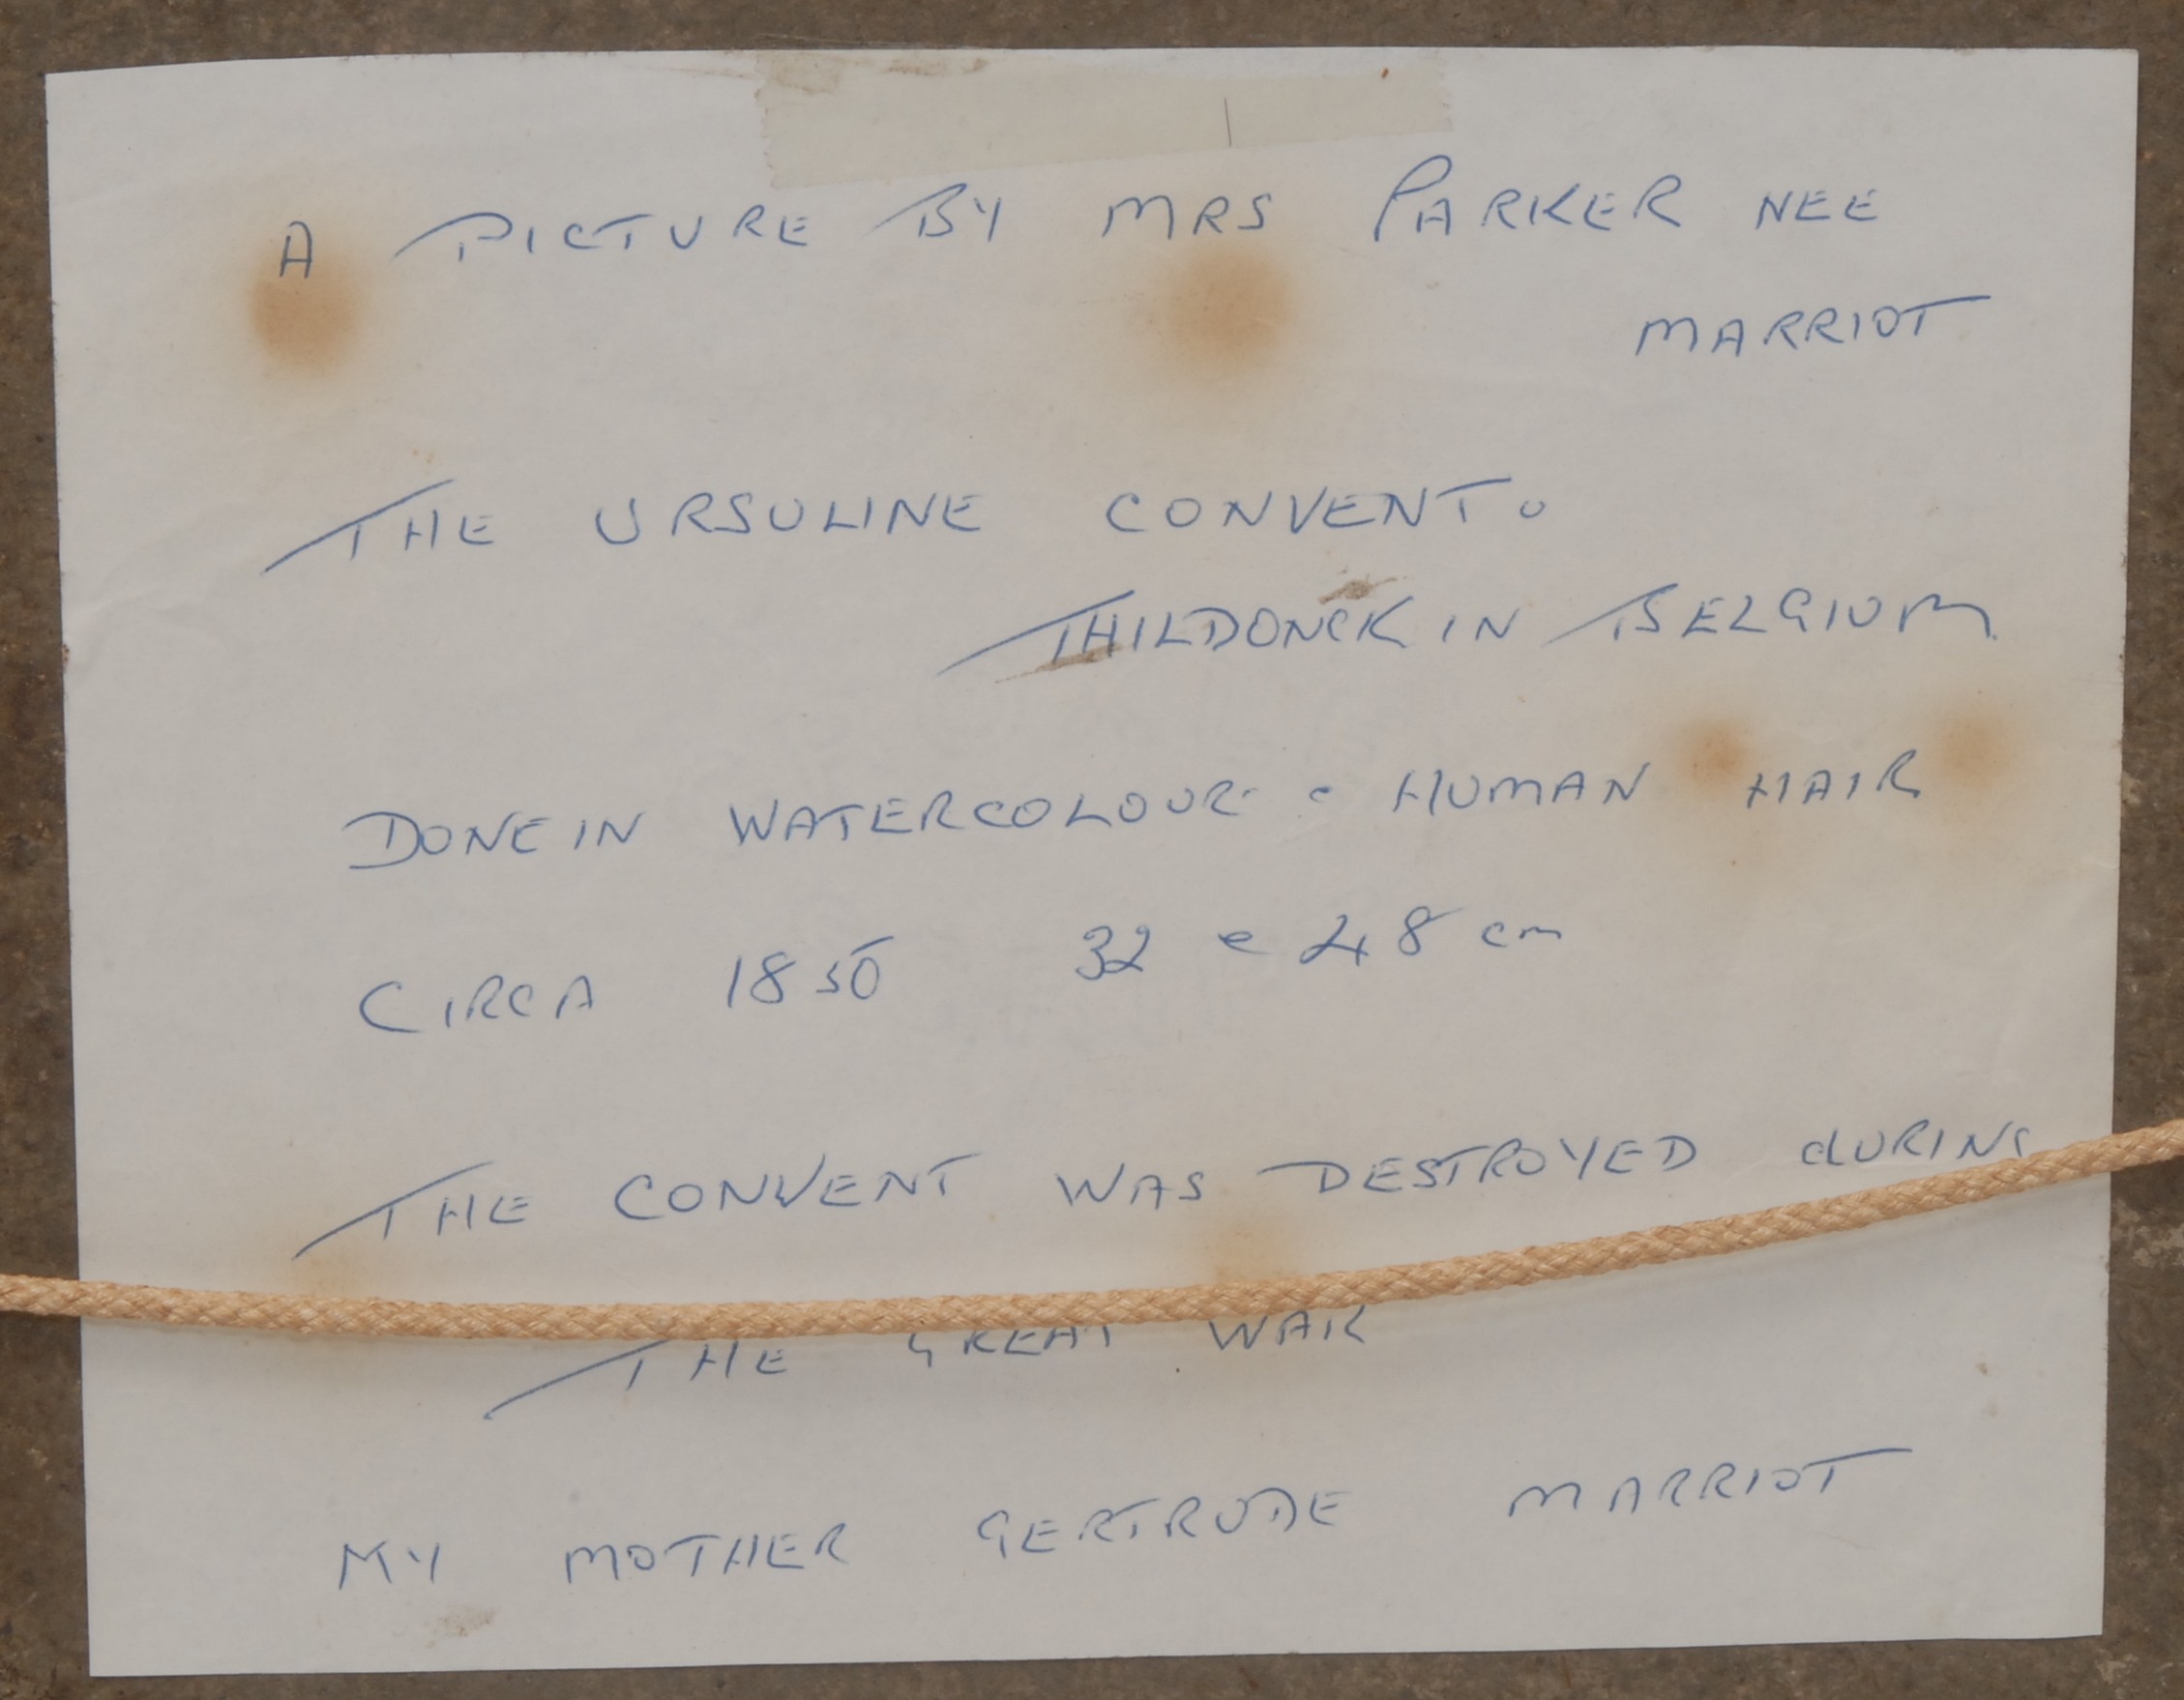 A PICTURE BY MRS PARKER NEE
MARRIOT
THE URSULINE CONVENT.
THILDONCK IN BELGIUM
DONE IN WATERCOLOUR HUMAN HAIR
CIRCA 1850 32 48 cm
THE CONVENT WAS DESTROYED dURING
THE GREAT WAR
MY MOTHER GERTRUDE MARRIOT